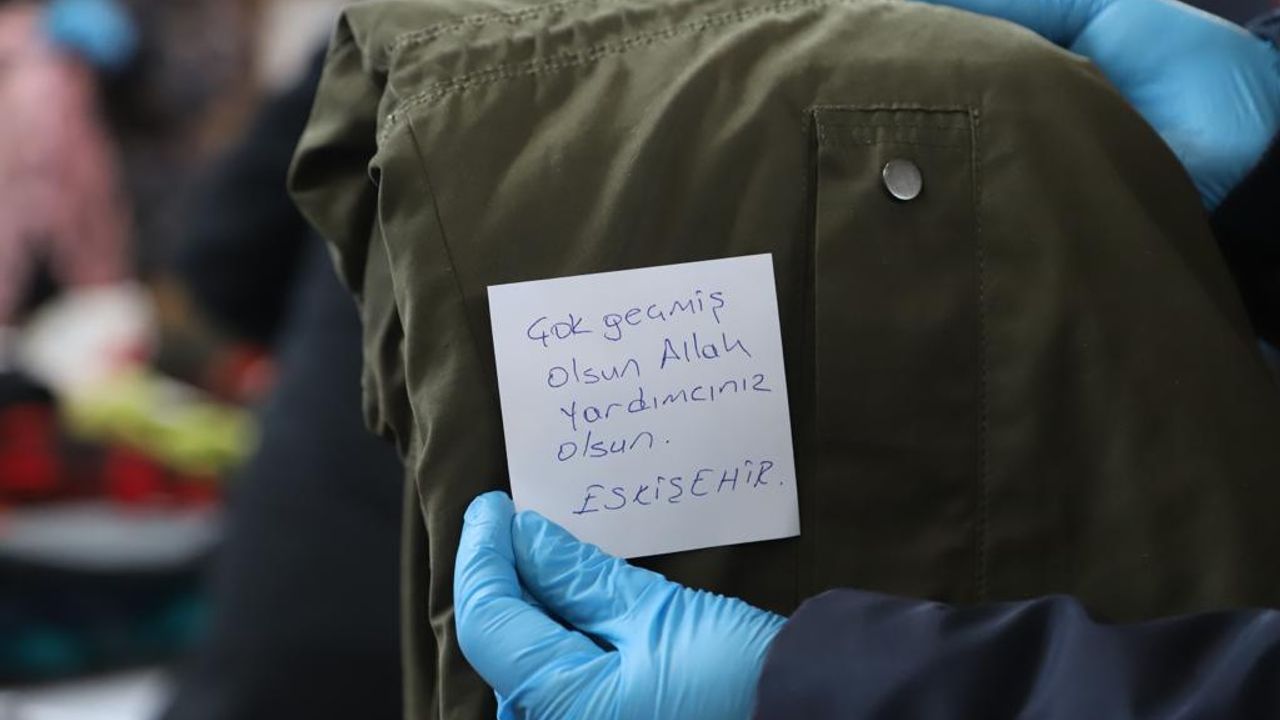 Çok geçmiş
olsun Allah
yardımcınız
olsun.
ESKİŞEHİR.